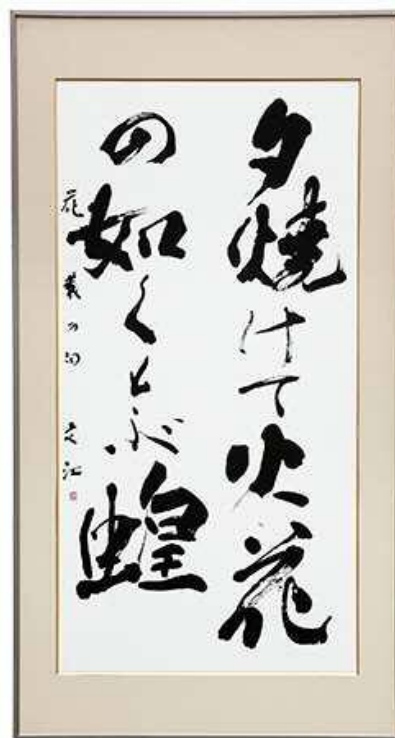 夕焼けて火花
の如くとぶ蝗
花蓑の句